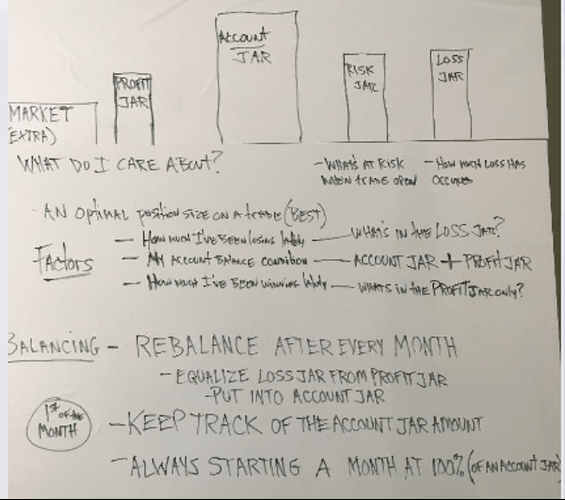 ACCOUNT
JAR
PROFIT
JAR
RISK
JAR
LOSS
JAR
MARKET
(EXTRA)
WHAT DO I CARE ABOUT?
- WHAT'S AT RISK
WHEN TRADE OPEN
- HOW MUCH LOSS HAS
OCCURED
- AN OPTIMAL POSITION SIZE ON A TRADE (BEST)
Factors
- HOW MUCH I'VE BEEN LOSING LATELY - WHAT'S IN THE LOSS JAR?
- MY ACCOUNT BALANCE - ACCOUNT JAR + PROFIT JAR
- HOW MUCH I'VE BEEN WINNING LATELY - WHATS IN THE PROFIT JAR ONLY?
BALANCING - REBALANCE AFTER EVERY MONTH
- EQUALIZE LOSS JAR FROM PROFIT JAR
- PUT INTO ACCOUNT JAR
1st OF THE
MONTH
- KEEP TRACK OF THE ACCOUNT JAR AMOUNT
- ALWAYS STARTING A MONTH AT 100% (OF AN ACCOUNT JAR)